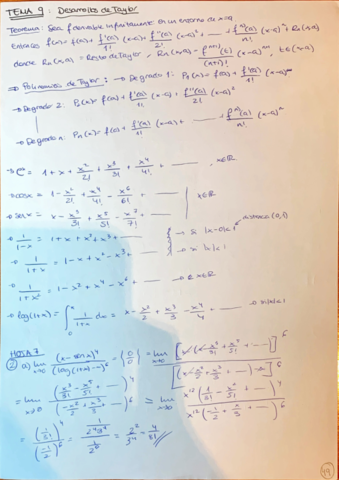 TEMA 9: Desarrollos de Taylor
Teorema: Sea f derivable infinitamente en un entorno de x=a
Entonces f(x) = f(a) + f'(a)/1! (x-a) + f''(a)/2! (x-a)² + ---- + fⁿ(a)/n! (x-a)ⁿ + Rn(x-a)
donde Rn(x-a) = Resto de Taylor, Rn(x-a) = fⁿ⁺¹(t)/(n+1)! (x-a)ⁿ⁺¹, t∈(x-a)
⇒ Polinomios de Taylor: → Degrado 1: P₁(x) = f(a) + f'(a)/1! (x-a)
→ Degrado 2: P₂(x) = f(a) + f'(a)/1! (x-a) + f''(a)/2! (x-a)²
→ Degrado n: Pn(x) = f(a) + f'(a)/1! (x-a) + ---- + fⁿ(a)/n! (x-a)ⁿ
→ eˣ = 1 + x + x²/2! + x³/3! + x⁴/4! + ---- , x∈ℝ
→ cosx = 1 - x²/2! + x⁴/4! - x⁶/6! + ----
→ senx = x - x³/3! + x⁵/5! - x⁷/7! + ---- x∈ℝ
→ 1/(1-x) = 1 + x + x² + x³ + ---- → si |x-0|<1
→ 1/(1+x) = 1 - x + x² - x³ + ---- → si |x|<1
→ 1/(1+x²) = 1 - x² + x⁴ - x⁶ + ----
→ log(1+x) = ∫₀ˣ 1/(1+x) dx = x - x²/2 + x³/3 - x⁴/4 + ---- → si |x|<1
HOJA 7
② a) lim x→0 (x - senx)⁴/(log(1+x) - x)⁶ = {0/0} = lim x→0 [x - (x - x³/3! + x⁵/5! + ----)]⁴/[(x - x²/2 + x³/3 + ----) - x]⁶
= lim x→0 (x³/3! - x⁵/5! + ----)⁴/(-x²/2 + x³/3 + ----)⁶ = lim x→0 x¹²(1/3! - x²/5! + ----)⁴/x¹²(-1/2 + x/3 + ----)⁶
= (1/3!)⁴/(-1/2)⁶ = (1/2⁴3⁴)/(1/2⁶) = 2²/3⁴ = 4/81
49